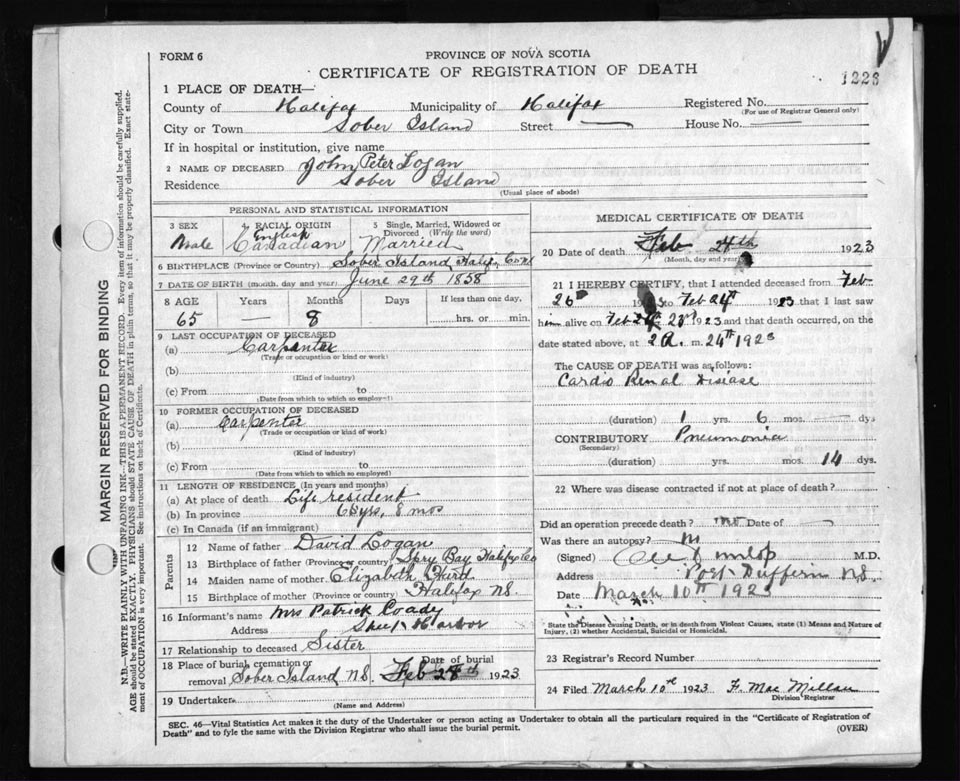 FORM 6
PROVINCE OF NOVA SCOTIA
CERTIFICATE OF REGISTRATION OF DEATH
1223
1 PLACE OF DEATH—
County of Halifax Municipality of Halifax Registered No.
(For use of Registrar General only)
City or Town Sober Island Street — House No. —
If in hospital or institution, give name
2 NAME OF DECEASED John Peter Logan
Residence Sober Island
(Usual place of abode)
PERSONAL AND STATISTICAL INFORMATION
3 SEX 4 RACIAL ORIGIN 5 Single, Married, Widowed or Divorced (Write the word)
Male English Canadian Married
6 BIRTHPLACE (Province or Country) Sober Island, Halifax Co NS
7 DATE OF BIRTH (month, day and year) June 29th 1858
8 AGE Years Months Days If less than one day,
65 — 8 hrs. or min.
9 LAST OCCUPATION OF DECEASED
(a) Carpenter
(Trade or occupation or kind or work)
(b)
(Kind of industry)
(c) From to
(Date from which to which so employed)
10 FORMER OCCUPATION OF DECEASED
(a) Carpenter
(Trade or occupation or kind of work)
(b)
(Kind of industry)
(c) From to
(Date from which to which so employed)
11 LENGTH OF RESIDENCE (In years and months)
(a) At place of death Life resident
(b) In province 65 yrs, 8 mos
(c) In Canada (if an immigrant)
Parents
12 Name of father David Logan
13 Birthplace of father (Province or country) Spry Bay Halifax Co
14 Maiden name of mother Elizabeth
15 Birthplace of mother (Province or country) Halifax NS.
16 Informant's name Mrs Patrick Coady
Address Sheet Harbor
17 Relationship to deceased Sister
18 Place of burial, cremation or Date of burial
removal Sober Island NS. Feb 28th 1923
19 Undertaker
(Name and Address)
MEDICAL CERTIFICATE OF DEATH
20 Date of death Feb 24th 1923
(Month, day and year)
21 I HEREBY CERTIFY, that I attended deceased from Feb-
26 192 to Feb 24th 1923 that I last saw
him alive on Feb 23rd 1923 and that death occurred, on the
date stated above, at 2 A. m. 24th 1923
The CAUSE OF DEATH was as follows:
Cardio Renal Disease
(duration) 1 yrs. 6 mos. — dys
CONTRIBUTORY Pneumonia
(Secondary)
(duration) yrs. mos. 14 dys.
22 Where was disease contracted if not at place of death?
Did an operation precede death? no Date of —
Was there an autopsy? No
(Signed) Dunlop M.D.
Address Port Dufferin NS.
Date March 10th 1923
State the Disease causing Death, or in death from Violent Causes, state (1) Means and Nature of
Injury, (2) whether Accidental, Suicidal or Homicidal.
23 Registrar's Record Number
24 Filed March 10th 1923 F. MacMillan
Division Registrar
SEC. 46—Vital Statistics Act makes it the duty of the Undertaker or person acting as Undertaker to obtain all the particulars required in the "Certificate of Registration of
Death" and to fyle the same with the Division Registrar who shall issue the burial permit.
(OVER)
MARGIN RESERVED FOR BINDING
N.B.—WRITE PLAINLY WITH UNFADING INK—THIS IS A PERMANENT RECORD. Every item of information should be carefully supplied.
AGE should be stated EXACTLY. PHYSICIANS should STATE CAUSE OF DEATH in plain terms, so that it may be properly classified. Exact state-
ment of OCCUPATION is very important. See instructions on back of Certificate.